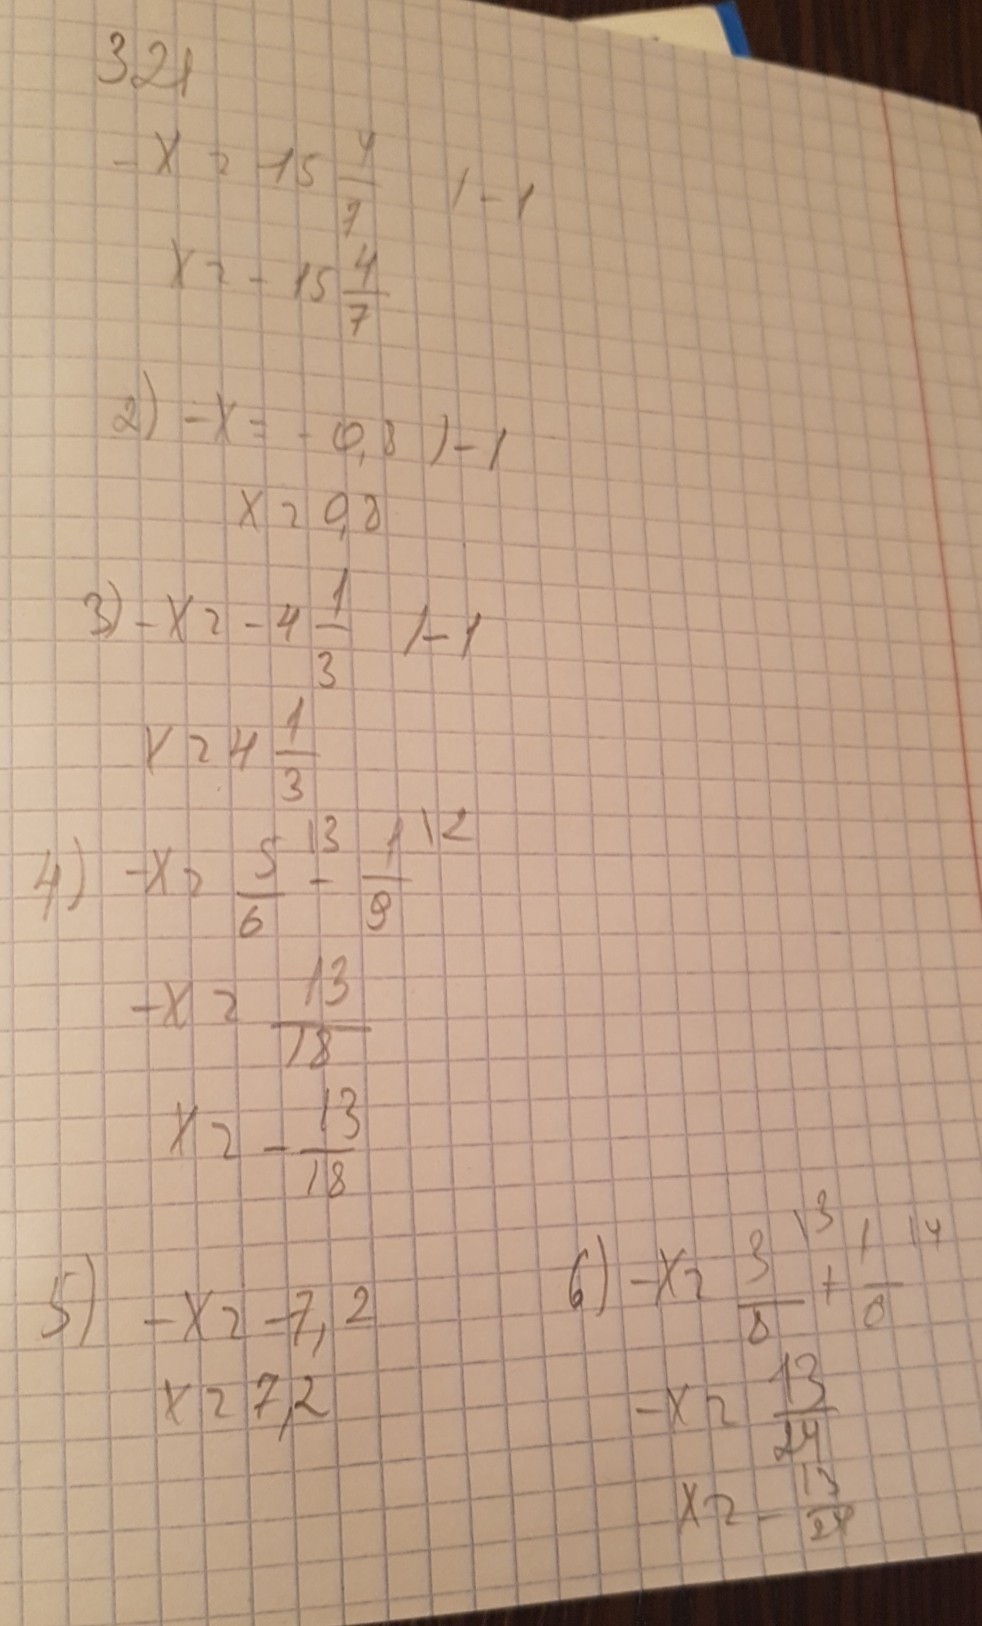 321
-x = -15 4/7 /-1
x = -15 4/7
2) -x = -0,8 /-1
x = 0,8
3) -x = -4 1/3 /-1
x = 4 1/3
4) -x = 5/6 \3 - 1/9 \2
-x = 13/18
x = -13/18
5) -x = -7,2
x = 7,2
6) -x = 3/8 \3 + 1/ \4
-x = 13/24
x = -13/24